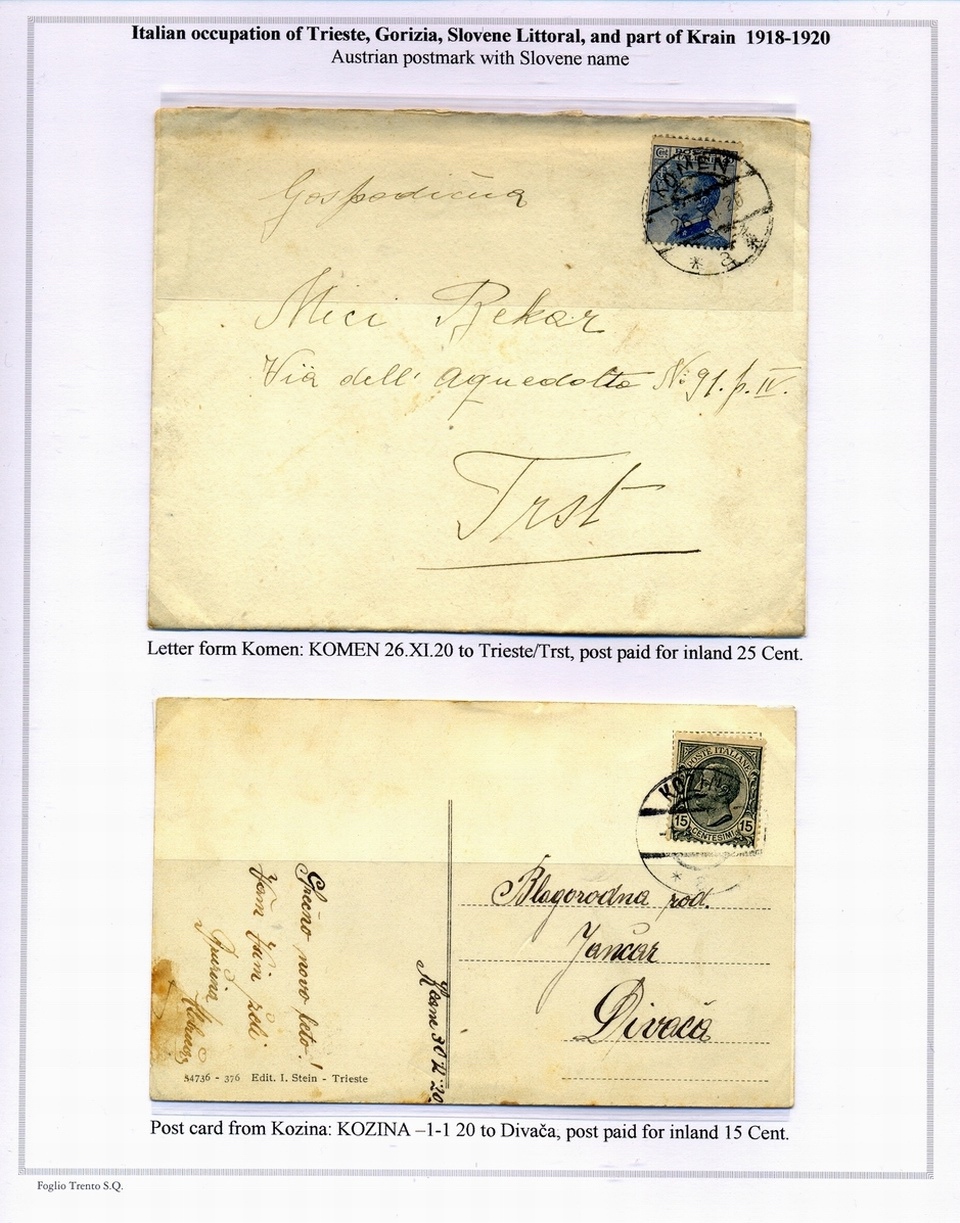 Italian occupation of Trieste, Gorizia, Slovene Littoral, and part of Krain 1918-1920
Austrian postmark with Slovene name
KOMEN
26.XI.20
* a *
Gospodična
Mici Rekar
Via dell' Aquedotto No: 91. p. IV.
Trst
Letter form Komen: KOMEN 26.XI.20 to Trieste/Trst, post paid for inland 25 Cent.
POSTE ITALIANE
15 15
CENTESIMI
KOZINA
Blagorodna rod.
Jančar
Divača
Srečno novo leto!
Vam želi
54736 - 376 Edit. I. Stein - Trieste
Post card from Kozina: KOZINA –1-1 20 to Divača, post paid for inland 15 Cent.
Foglio Trento S.Q.